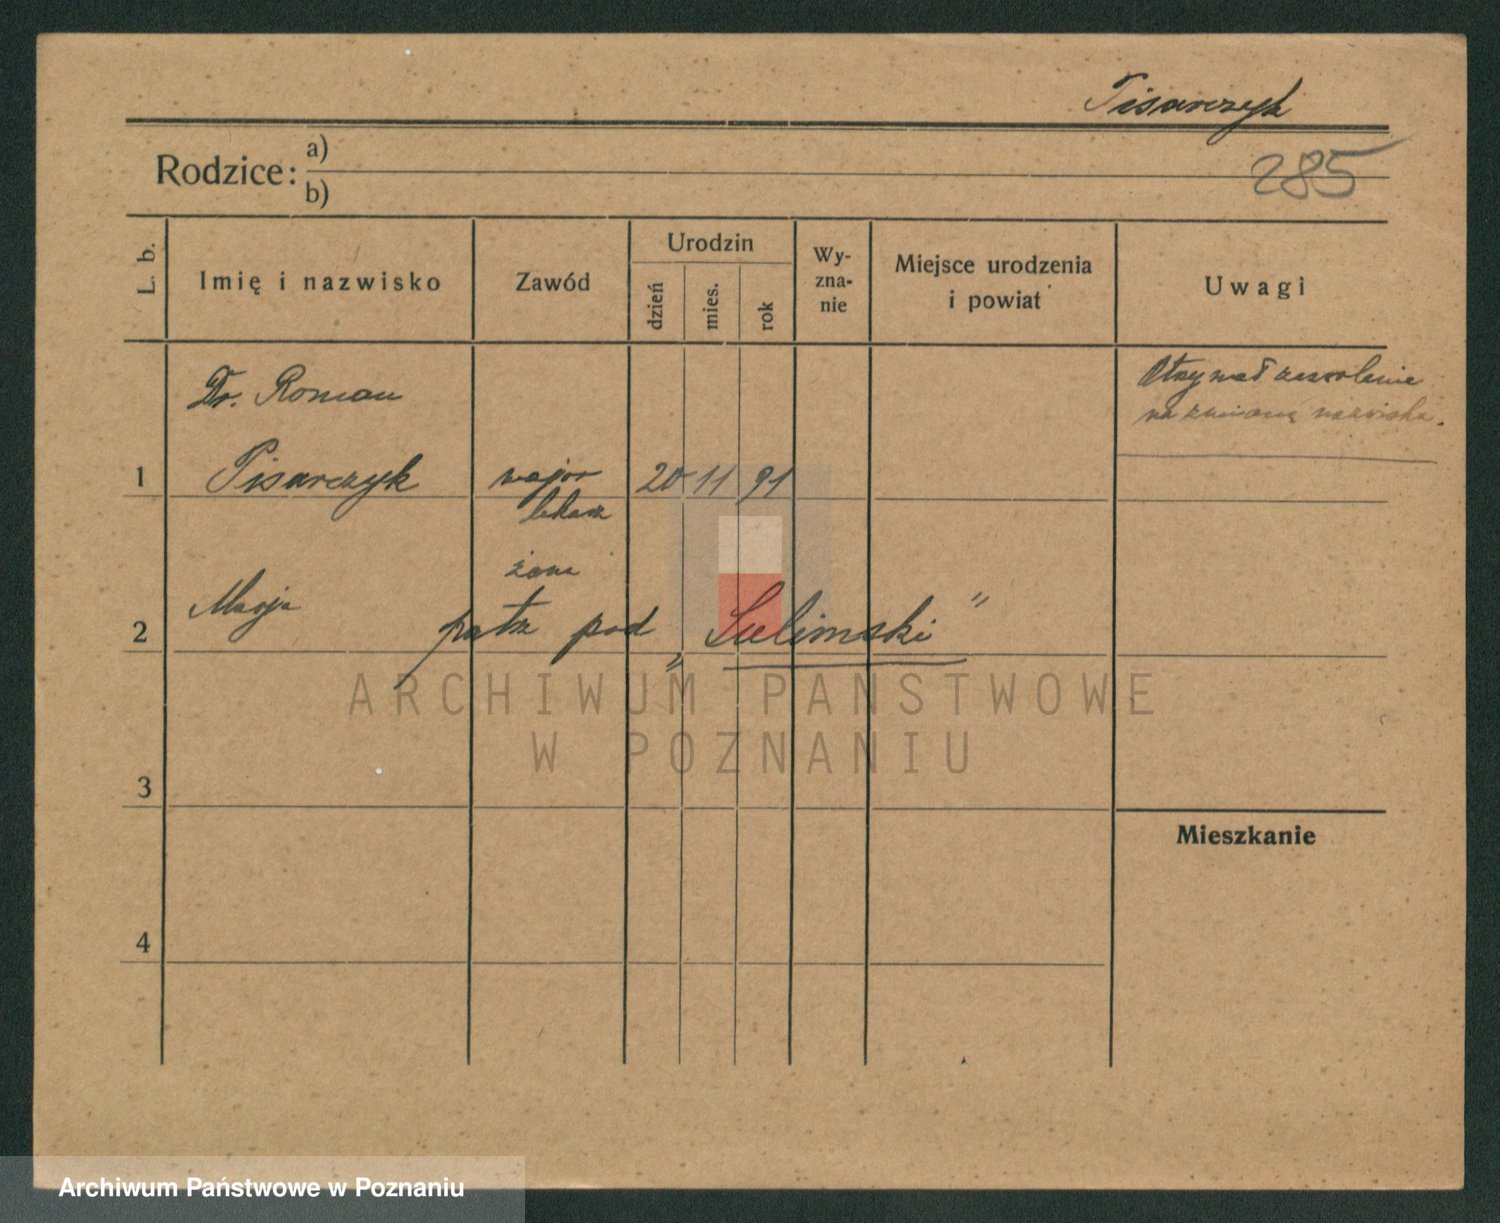 Pisarczyk
Rodzice: a)
b)
285
L. b.
Imię i nazwisko
Zawód
Urodzin
dzień
mies.
rok
Wy-
zna-
nie
Miejsce urodzenia
i powiat
Uwagi
Dr. Roman
1 Pisarczyk major 20 11 91
lekarz
Otrzymał zezwolenie
na zmianę nazwiska.
żona
2 Marja patrz pod „Sulimski"
ARCHIWUM PAŃSTWOWE
W POZNANIU
3
Mieszkanie
4
Archiwum Państwowe w Poznaniu